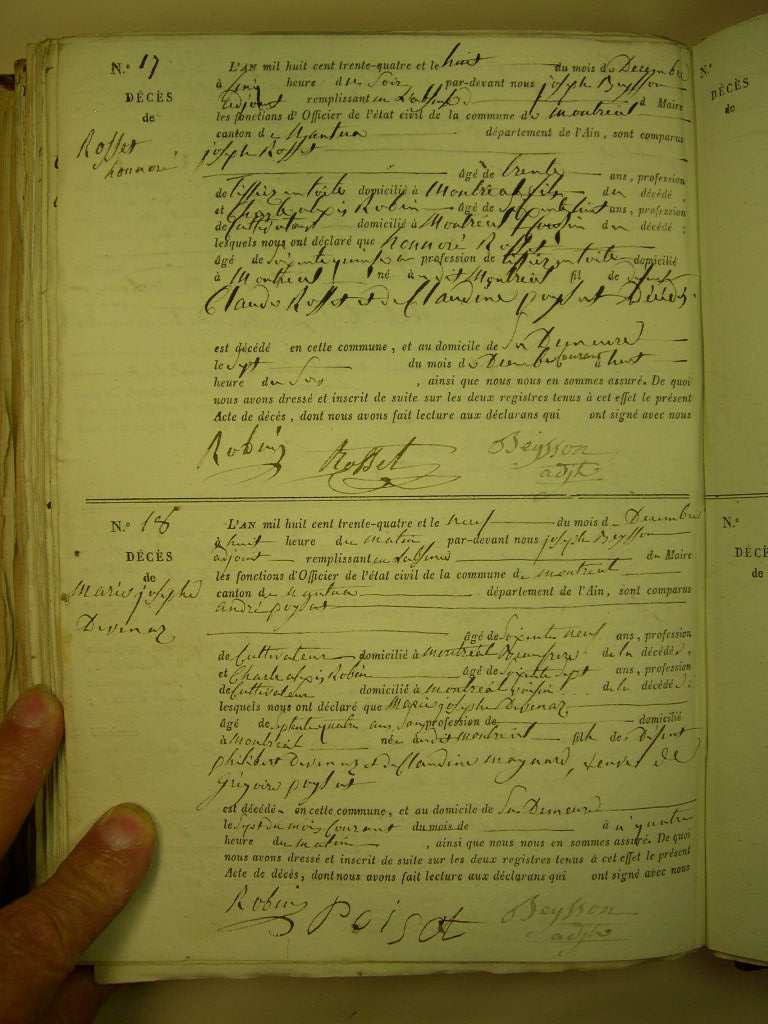 N.° 17
DÉCÈS
de
Rosset
honnoré
L'AN mil huit cent trente-quatre et le huit du mois d e Decembre
à cinq heure du Soir par-devant nous joseph Beysson
adjoint remplissant en L'absence d Maire
les fonctions d'Officier de l'état civil de la commune de montréal
canton de Nantua département de l'Ain, sont comparus
joseph Rosset
âgé de trente ans, profession
de tissier en toile domicilié à Montréal fils du décédé ;
et Charle alexis Robin âgé de soixante huit ans, profession
de cultivateur domicilié à Montréal voisin du décédé ;
lesquels nous ont déclaré que honnoré Rosset
âgé de soixante quinze an profession de tissier en toile domicilié
à Montréal né à Montréal fils de
Claude Rosset et de Claudine poysat Décédés.
est décédé en cette commune, et au domicile de Sa Demeure
le sept du mois de Decembre courant à huit
heure du Soir , ainsi que nous nous en sommes assuré. De quoi
nous avons dressé et inscrit de suite sur les deux registres tenus à cet effet le présent
Acte de décès, dont nous avons fait lecture aux déclarans qui ont signé avec nous
Robin Rosset Beysson
adjt
N.° 18
DÉCÈS
de
Marie josephe
Devenaz
L'AN mil huit cent trente-quatre et le neuf du mois d e Decembre
à huit heure du matin par-devant nous joseph Beysson
adjoint remplissant en L'absence du Maire
les fonctions d'Officier de l'état civil de la commune de montréal
canton de Nantua département de l'Ain, sont comparus
andré poysat
âgé de soixante neuf ans, profession
de Cultivateur domicilié à montréal Beaufrere de la décédée ;
et Charle alexis Robin âgé de soixante sept ans, profession
de Cultivateur domicilié à montréal voisin de la décédée ;
lesquels nous ont déclaré que Marie josephe Devenaz
âgé de septante quatre ans Sans profession de domicilié
à Montréal née audit montréal fille de Defunt
philibert Devenaz et de Claudine maynard, veuve de
Grégoire poysat
est décédée en cette commune, et au domicile de Sa Demeure
le sept du mois Courant du mois de à quatre
heure du matin , ainsi que nous nous en sommes assuré. De quoi
nous avons dressé et inscrit de suite sur les deux registres tenus à cet effet le présent
Acte de décès, dont nous avons fait lecture aux déclarans qui ont signé avec nous
Robin poisat Beysson
adjt
N.°
DÉCÈS
de
N.°
DÉCÈ
de